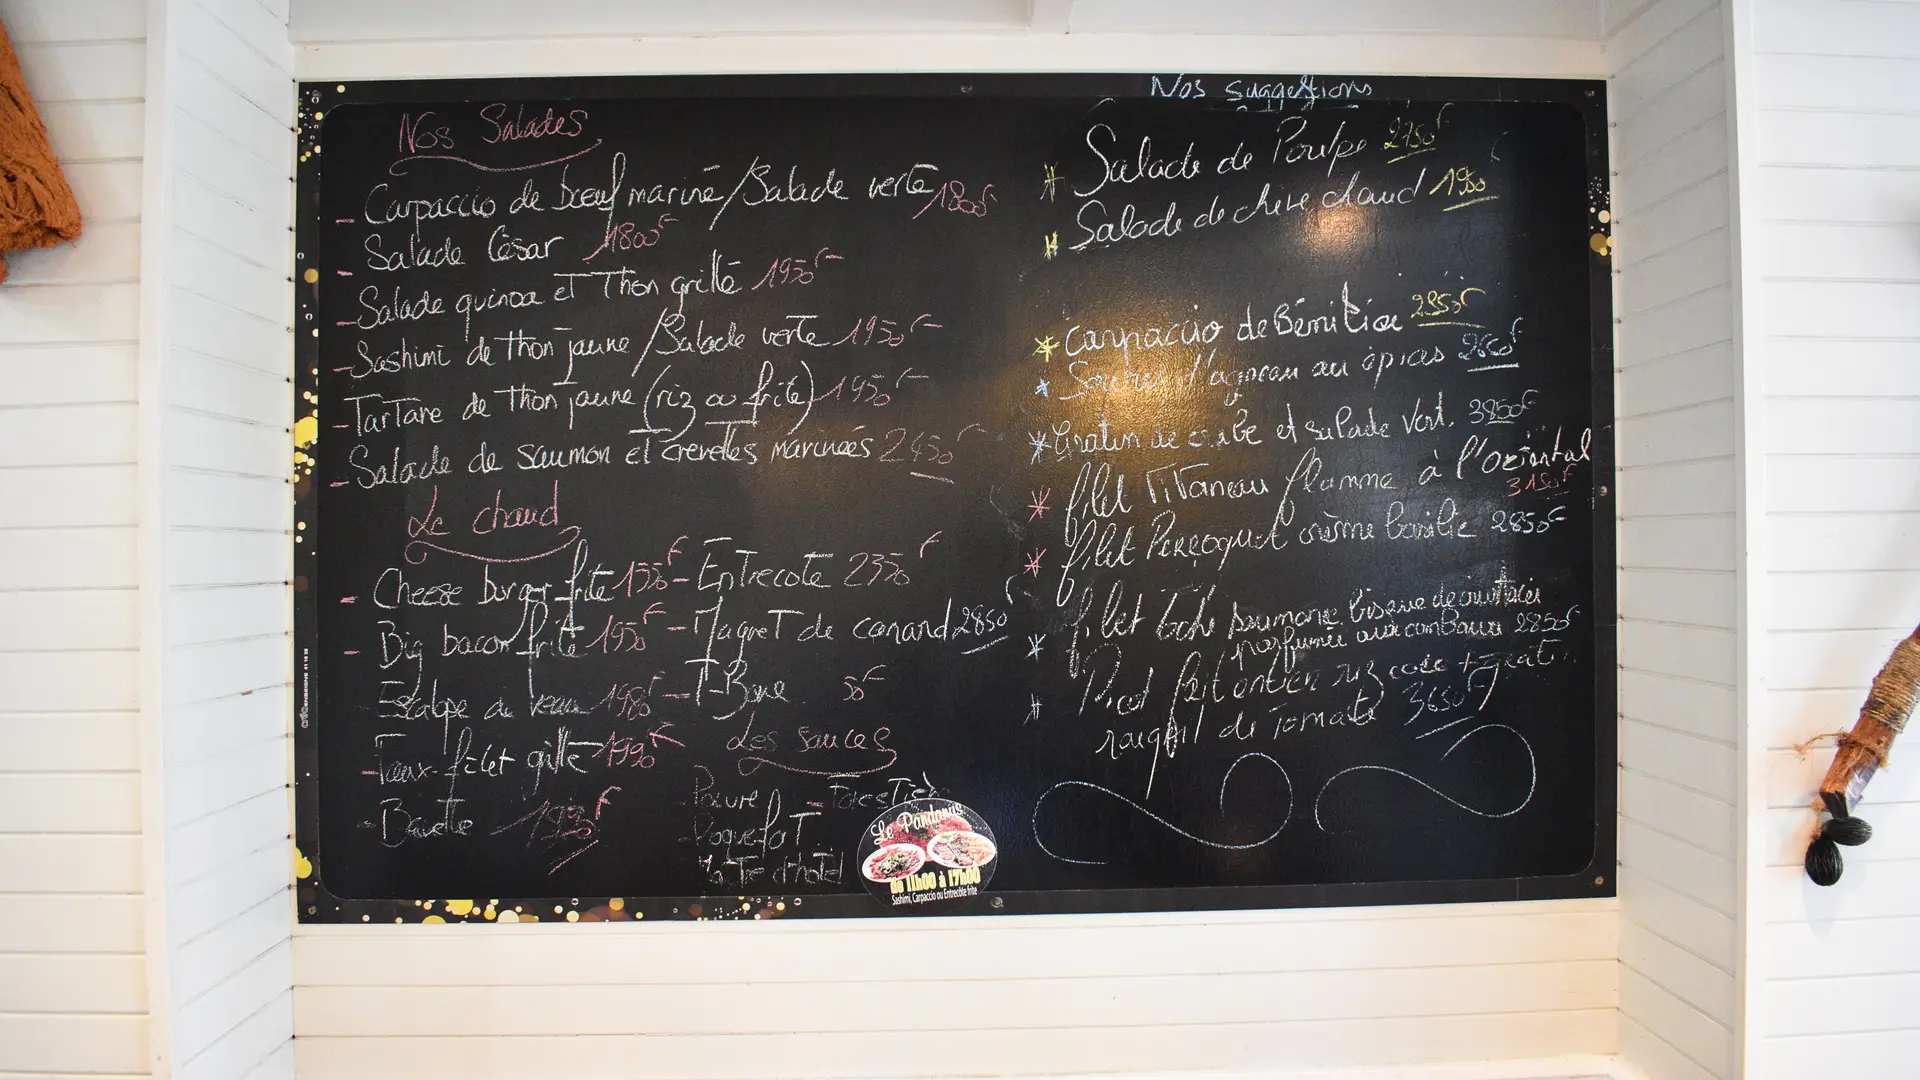 Nos Salades
- Carpaccio de bœuf mariné/Salade verte 1800F
- Salade César 1800F
- Salade quinoa et Thon grillé 1950F
- Sashimi de thon jaune/Salade verte 1950F
- Tartare de thon jaune (riz ou frite) 1950F
- Salade de saumon et crevettes marinées 2450F
Le chaud
- Cheese burger frite 1550F
- Big bacon frite 1950F
Escalope de veau 1980F
- Faux-filet grillé 1990F
- Bavette 1990F
- Entrecote 2350F
- Magret de canard 2850F
- T-Bone 50F
Les sauces
- Poivre - Forestière
- Roquefort
- Maître d'hotel
Le Pandanus
de 11h00 à 17h00
Sashimi, Carpaccio ou Entrecôte frite
Nos suggestions
* Salade de Poulpe 2750F
* Salade de chèvre chaud 1950F
* Carpaccio de Bénitier 2950F
* d'agneau au épices
* Gratin de crabe et salade Vert. 3850F
* filet Titaneau flamme à l'oriental
3150F
* filet Perroquet crème basilic 2850F
* filet saumone bisque de crustacés
parfumée aux combawa 2850F
* riz coco + gratin
rougail de Tomate 3650F